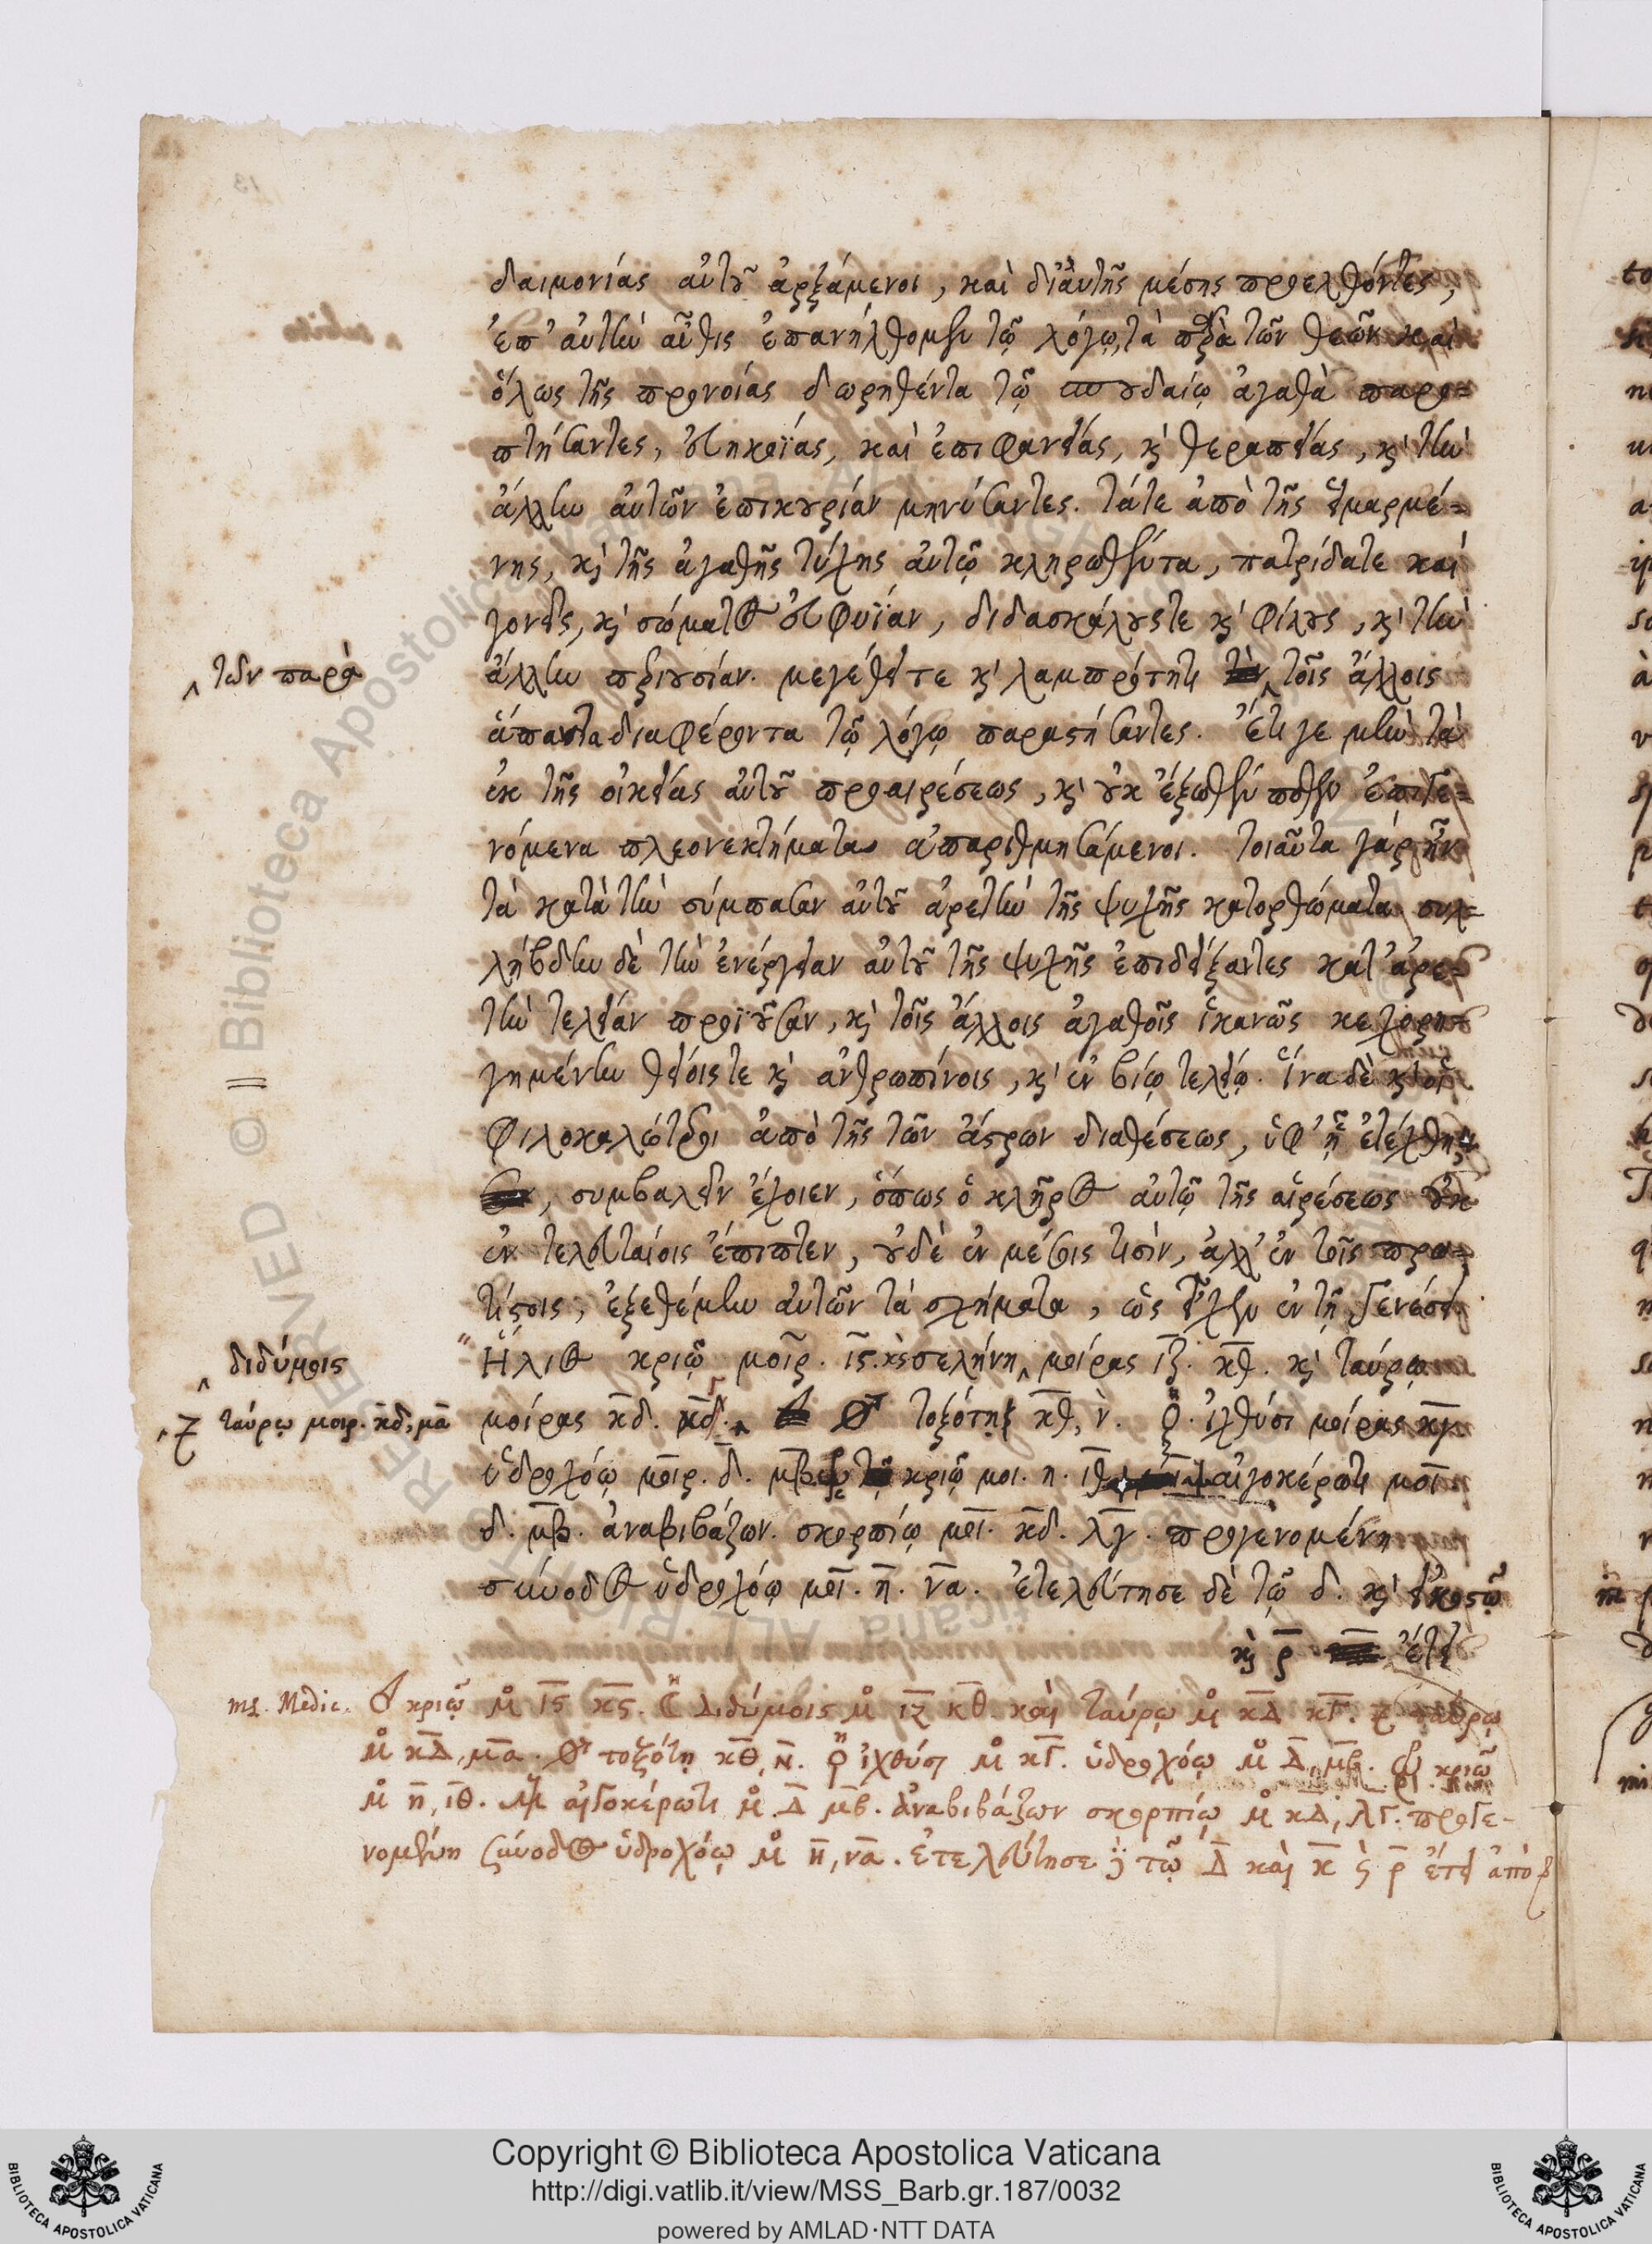 δαιμονίας αὐτοῦ ἀρξάμενοι, καὶ δι᾽ αὐτῆς μέσης προελθόντες,
ἐπ᾽ αὐτὴν αὖθις ἐπανήλθομεν τῷ λόγῳ, τὰ παρὰ τῶν θεῶν καὶ
ὅλως τῆς προνοίας δωρηθέντα τῷ σπουδαίῳ ἀγαθὰ παρο=
πτήσαντες, εὐηκοΐας, καὶ ἐπιφανείας, κὶ θεραπείας, κὶ τὴν
ἄλλην αὐτῶν ἐπικουρίαν μηνύσαντες. τά τε ἀπὸ τῆς εἱμαρμέ=
νης, κὶ τῆς ἀγαθῆς τύχης αὐτῷ κληρωθέντα, πατρίδα τε καὶ
γονεῖς, κὶ σώματος εὐφυΐαν, διδασκάλους τε κὶ φίλους, κὶ τὴν
ἄλλην περιουσίαν. μεγέθει τε κὶ λαμπρότητι τοῖς ἄλλοις
‸ τῶν παρὰ
ἅπαντα διαφέροντα τῷ λόγῳ παραστήσαντες. ἔτι γε μὴν τὰ
ἐκ τῆς οἰκείας αὐτοῦ προαιρέσεως, κὶ οὐκ ἔξωθέν ποθεν ἐπιγε=
νόμενα πλεονεκτήματα ἀπαριθμησάμενοι. τοιαῦτα γὰρ ἦν
τὰ κατὰ τὴν σύμπασαν αὐτοῦ ἀρετὴν τῆς ψυχῆς κατορθώματα συλ=
λήβδην δὲ τὴν ἐνέργειαν αὐτοῦ τῆς ψυχῆς ἐπιδείξαντες κατ᾽ ἀρε=
τὴν τελείαν προϊοῦσαν, κὶ τοῖς ἄλλοις ἀγαθοῖς ἱκανῶς κεχορη=
γημένην θείοις τε κὶ ἀνθρωπίνοις, κὶ ἐν βίῳ τελείῳ. ἵνα δὲ κὶ οἱ
φιλοκαλώτεροι ἀπὸ τῆς τῶν ἄστρων διαθέσεως, ὑφ᾽ ᾗ ἐτέχθη,
συμβαλεῖν ἔχοιεν, ὅπως ὁ κλῆρος αὐτῷ τῆς αἱρέσεως οὐκ
ἐν τελευταίοις ἔπιπτεν, οὐδὲ ἐν μέσοις τισὶν, ἀλλ᾽ ἐν τοῖς πρω=
τίστοις, ἐξεθέμην αὐτῶν τὰ σχήματα, ὡς εἶχεν ἐν τῇ γενέσει.
" Ἥλιος κριῷ μοῖρ. ις. κς σελήνη ‸ μοίρας ιζ. κθ. κὶ ταύρῳ
‸ διδύμοις
μοίρας κδ. κγ. ‸ ♂ τοξότῃ κθ, ν. ♀. ἰχθύσι μοίρας κγ
‸ ♃ ταύρῳ μοιρ. κδ, μα
ὑδροχόῳ μοιρ. δ. μβ κριῷ μοι. η. ιθ αἰγοκέρωτι μοι
δ. μβ. ἀναβιβάζων. σκορπίῳ μοι. κδ. λγ. προγενομένη
σύνοδος ὑδροχόῳ μοι. η. να. ἐτελεύτησε δὲ τῷ δ. κὶ εἰκοστῷ
κὶ ρ ἔτει
ms. Medic. ☉ κριῷ μο ις κς. ☾ διδύμοις μο ιζ κθ. καὶ ταύρῳ μο κδ κγ. ♃ ταύρῳ
μο κδ, μα. ♂ τοξότῃ κθ, ν. ♀ ἰχθύσι μο κγ. ὑδροχόῳ μο δ, μβ. κριῷ
μο η, ιθ. αἰγοκέρωτι μο δ μβ. ἀναβιβάζων σκορπίῳ μο κδ, λγ. προγε-
νομένη σύνοδος ὑδροχόῳ μο η, να. ἐτελεύτησε δὲ τῷ δ καὶ κ ς ρ ἔτει ἀπὸ
Copyright © Biblioteca Apostolica Vaticana
http://digi.vatlib.it/view/MSS_Barb.gr.187/0032
powered by AMLAD·NTT DATA
BIBLIOTECA APOSTOLICA VATICANA
BIBLIOTECA APOSTOLICA VATICANA